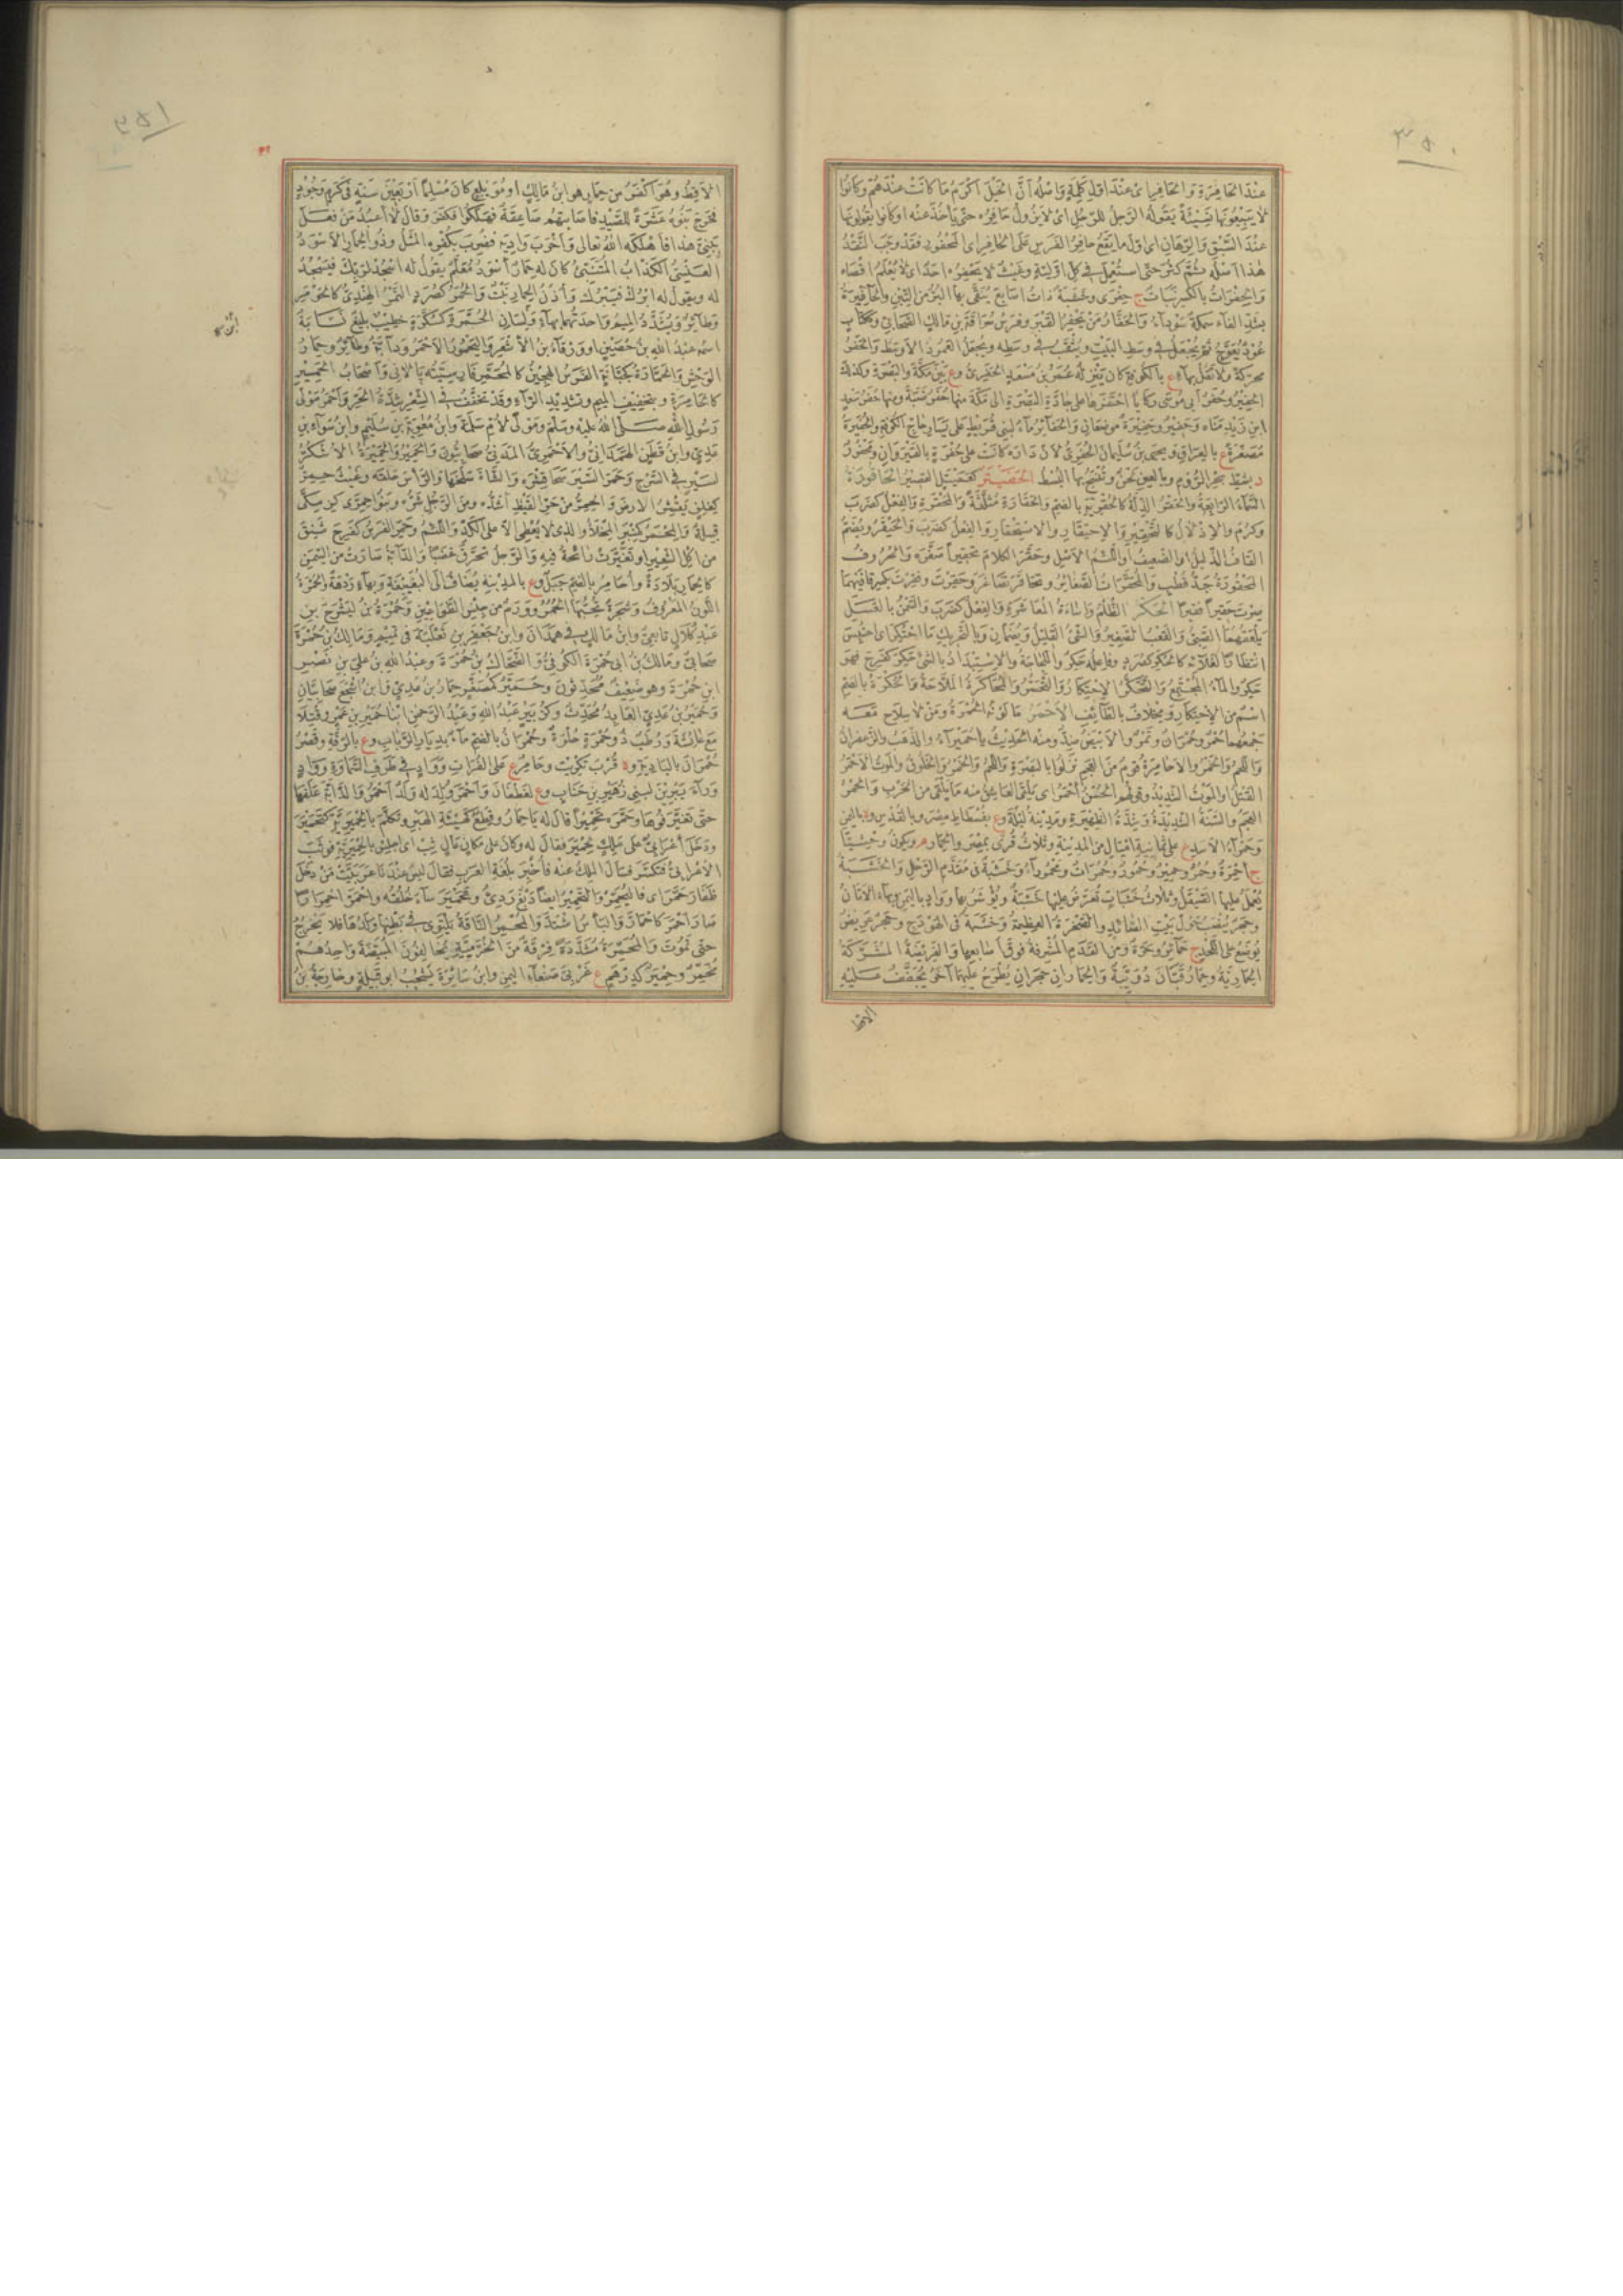 ٣٥٠
عند الحافرة والحافر اى عند اول كلمة واصله ان الخيل اكرم ما كانت عندهم وكانوا
لا يبيعونها نسيئة يقوله الرجل للرجل اى لا يزول حافره حتى يأخذ ثمنه او كانوا يقولونها
عند السبق والرهان اى اول ما يقع حافر الفرس على الحافر اى المحفور فقد وجب النقد
هذا اصله ثم كثر حتى استعمل فى كل اولية وغيث لا يحفره احد اى لا يعلم اقصاه
والحفراة بالكسر نبات ج حفرى وخشبة ذات اصابع ينقى بها البر من التبن والحافيرة
بشد الفاء سمكة سوداء والحفار من يحفر القبر وفرس سراقة بن مالك الصحابى وككتاب
عود يعوج ثم يجعل فى وسط البيت ويثقب فى وسطه ويجعل العمود الاوسط والحفر
محركة ولا تقل بهاء ع بالكوفة كان ينزله عمر بن سعد الحفرى وع بين مكة والبصرة وكذلك
الحفير وحفر ابى موسى ركايا احتفرها على جادة البصرة الى مكة منها حفر ضبة ومنها حفر سعد
ابن زيد مناة وحفير وحفيرة موضعان والحفائر ماء لبنى قريط على يسار حاج الكوفة والحفيرة
مصغرة ع بالعراق ويحيى بن سليمان الحفرى لان داره كانت على حفرة بالقيروان ومحفور
د بشط بحر الروم وبالعين لحن وتنسج بها البسط الحفيتر كعميثل القصير الحاقورة
السماء الرابعة والحقر الذلة كالحقرية بالضم والحقارة مثلثة والمحقرة والفعل كضرب
وكرم والاذلال كالتحقير والاحتقار والاستحقار والفعل كضرب والحيقر ويضم
القاف الذليل او الضعيف او اللئيم الاصل وحقر الكلام تحقيرا صغره والحروف
المحقورة جد قطب والمحقرات الصغائر وتحاقر تصاغر وحقرت ونقرت بكسر قافيهما
صرت حقيرا فقيرا الحكر الظلم واساءة المعاشرة والفعل كضرب والسمن بالعسل
يلعقهما الصبى والقعب الصغير والشىء القليل ويضمان وبالتحريك ما احتكر اى احتبس
انتظارا لغلائه كالحكر كصرد وفاعله حكر واللجاجة والاستبداد بالشىء حكر كفرح فهو
حكر والماء المجتمع والتحكر الاحتكار والتحسر والمحاكرة الملاحة والحكرة بالضم
اسم من الاحتكار ومخلاف بالطائف الاحمر ما لونه الحمرة ومن لا سلاح معه
جمعهما حمر وحمران وتمر والابيض ضد ومنه الحديث يا حميراء والذهب والزعفران
واللحم والخمر والاحامرة قوم من العجم نزلوا بالبصرة واللحم والخمر والخلوق والموت الاحمر
القتل او الموت الشديد وقولهم الحسن احمر اى يلقى العاشق منه ما يلقى من الحرب والحمراء
العجم والسنة الشديدة وشدة الظهيرة ومدينة لبلة وع بفسطاط مصر وبالقدس وة باليمن
وحمراء الاسد ع على ثمانية اميال من المدينة وثلاث قرى بمصر والحمار م ويكون وحشيا
ج احمرة وحمر وحمير وحمور وحمرات ومحموراء وخشبة فى مقدم الرحل والخشبة
يعمل عليها الصيقل وثلاث خشبات تعرض عليها خشبة وتؤسر بها وواد باليمن وبهاء الاتان
وحجر ينصب حول بيت الصائد والصخرة العظيمة وخشبة فى الهودج وحجر عريض
يوضع على اللحد ج حمائر وحرة ومن القدم المشرفة فوق اصابعها والفريضة المشركة
الحمارية وحمار قبان دويبة والحماران حجران يطرح عليهما آخر يجفف عليه
الاقط
٣٥١
الاقط وهو اكفر من حمار هو ابن مالك او مويلع كان مسلما اربعين سنة فى كرم وجود
فخرج بنوه عشرة للصيد فاصابتهم صاعقة فهلكوا فكفر وقال لا اعبد من فعل
ببنى هذا فاهلكه الله تعالى واخرب واديه فضرب بكفره المثل وذو الحمار الاسود
العنسى الكذاب المتنبئ كان له حمار اسود معلم يقول له اسجد لربك فيسجد
له ويقول له ابرك فيبرك واذن الحمار نبت والحمر كصرد التمر الهندى كالحومر
وطائر ويشدد الميم واحدتهما بهاء ولسان الحمرة كسكرة خطيب بليغ نسابة
اسمه عبد الله بن حصين او ورقاء بن الاشعر واليحمور الاحمر ودابة وطائر وحمار
الوحش والحمارة كجبانة الفرس الهجين كالمحمر فارسيته پالانى واصحاب الحمير
كالحامرة وبتخفيف الميم وتشديد الراء وقد تخفف فى الشعر شدة الحر واحمر مولى
رسول الله صلى الله عليه وسلم ومولى لام سلمة وابن معوية بن سليم وابن سواء بن
عدى وابن قطن الهمدانى والاحمرى المدنى صحابيون والحمير والحميرة الاشكز
لسير فى السرج وحمر السير سحا قشره والشاة سلخها والرأس حلقه وغيث حمر
كفلز يقشر الارض والحمر من حر القيظ اشده ومن الرجل شره وبنو حمرى كزمكى
قبيلة والمحمر كمنبر المحلأ والذى لا يعطى الا على الكد واللئيم وحمر الفرس كفرح سنق
من اكل الشعير او تغيرت رائحة فيه والرجل تحرق غضبا والدابة صارت من السمن
كالحمار بلادة واحامر بالضم جبل وع بالمدينة يضاف الى البغيبغة وبهاء ردهة والحمرة
اللون المعروف وشجرة تحبها الحمر وورم من جنس الطواعين وحمرة بن ليشرح بن
عبد كلال تابعى وابن مالك فى همدان وابن جعفر بن ثعلبة فى تميم ومالك بن حمرة
صحابى ومالك بن ابى حمرة الكوفى والضحاك بن حمرة وعبد الله بن على بن نصر
ابن حمرة وهو ضعيف محدثون وحمير كمصغر حمار بن عدى وابن اشجع صحابيان
وحمير بن عدى العابد محدث وكزبير عبد الله وعبد الرحمن ابنا حمير بن عمرو قتلا
مع عائشة ورطب ذو حمرة حلوة وحمران بالضم ماء بديار الرباب وع بالرقة وقصر
حمران بالبادية وة قرب تكريت وحامر ع على الفرات وواد فى طرف السماوة وواد
وراء يبرين لبنى زهير بن جناب وع لغطفان واحمر ولد له ولد احمر والدابة علفها
حتى تغير فوها وحمره تحميرا قال له يا حمار وقطع كهيئة الهبر وتكلم بالحميرية كتحمير
ودخل اعرابى على ملك لحمير فقال له وكان على مكان عال ثب اى اجلس بالحميرية فوثب
الاعرابى فتكسر فسأل الملك عنه فأخبر بلغة العرب فقال ليس عندنا عربيت من دخل
ظفار حمر اى فليحمر والتحمير ايضا دبغ ردئ وتحمير ساء خلقه واحمر احمرارا
صار احمر كاحمار والبأس اشتد والمحمر الناقة يلتوى فى بطنها ولدها فلا يخرج
حتى تموت والمحمرة مشددة فرقة من الخرمية يخالفون المبيضة واحدهم
محمر وحمير كدرهم ع غربى صنعاء اليمن وابن سبا بن يشجب ابو قبيلة وخارجة بن